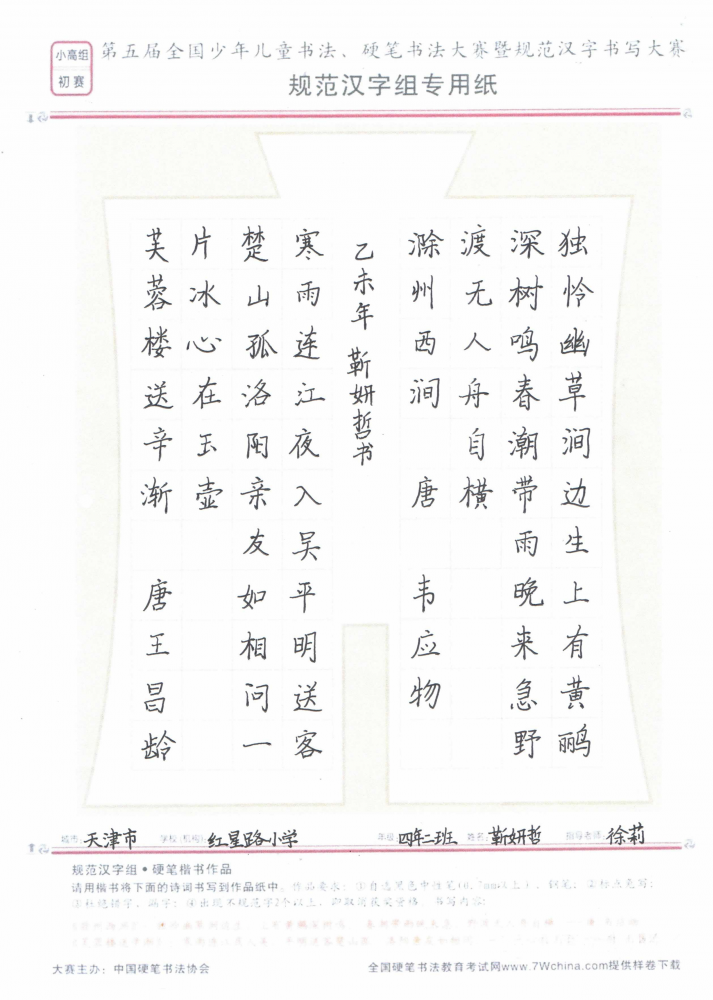 小高组
初赛
第五届全国少年儿童书法、硬笔书法大赛暨规范汉字书写大赛
规范汉字组专用纸
独怜幽草涧边生上有黄鹂
深树鸣春潮带雨晚来急野
渡无人舟自横
滁州西涧 唐 韦应物
乙未年 靳妍哲书
寒雨连江夜入吴平明送客
楚山孤洛阳亲友如相问一
片冰心在玉壶
芙蓉楼送辛渐 唐王昌龄
城市：天津市 学校(机构)：红星路小学 年级：四年二班 姓名：靳妍哲 指导老师：徐莉
规范汉字组·硬笔楷书作品
请用楷书将下面的诗词书写到作品纸中。作品要求：①自选黑色中性笔(0.7mm以上)、钢笔；②标点免写；
③杜绝错字、漏字；④出现不规范字2个以上，即取消获奖资格。书写内容：
大赛主办：中国硬笔书法协会
全国硬笔书法教育考试网www.7Wchina.com提供样卷下载